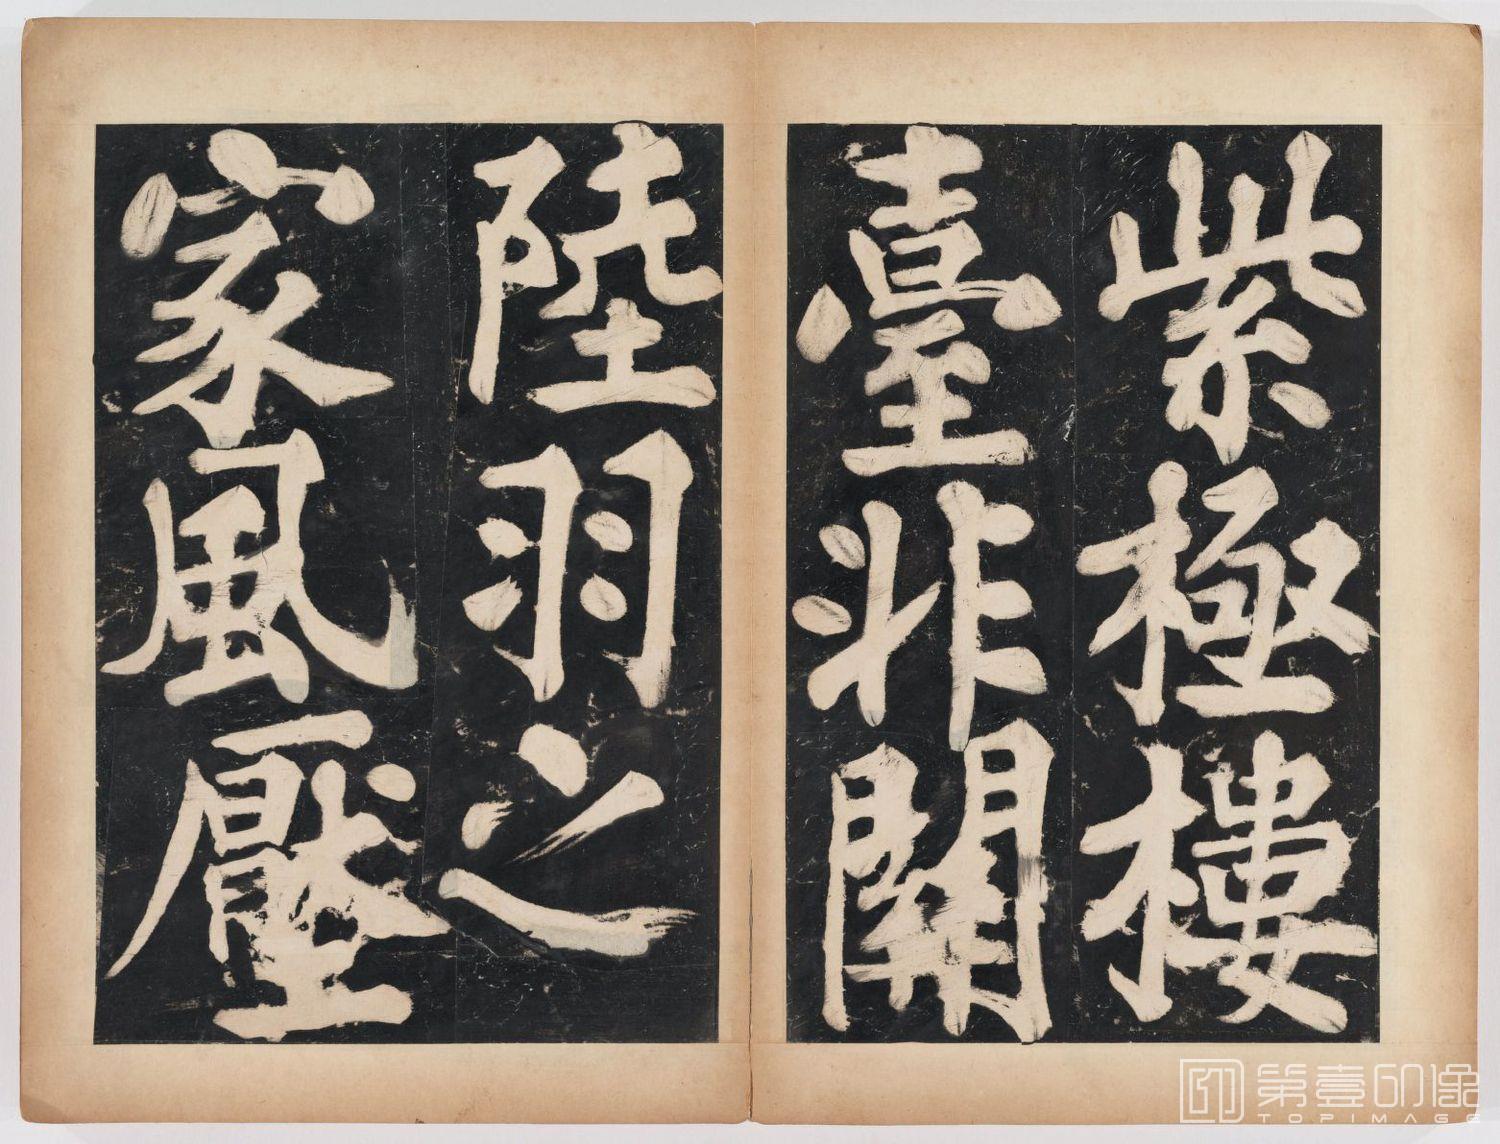 紫極樓
臺非關
陸羽之
家風壓
第壹印像
TOPIMAGE